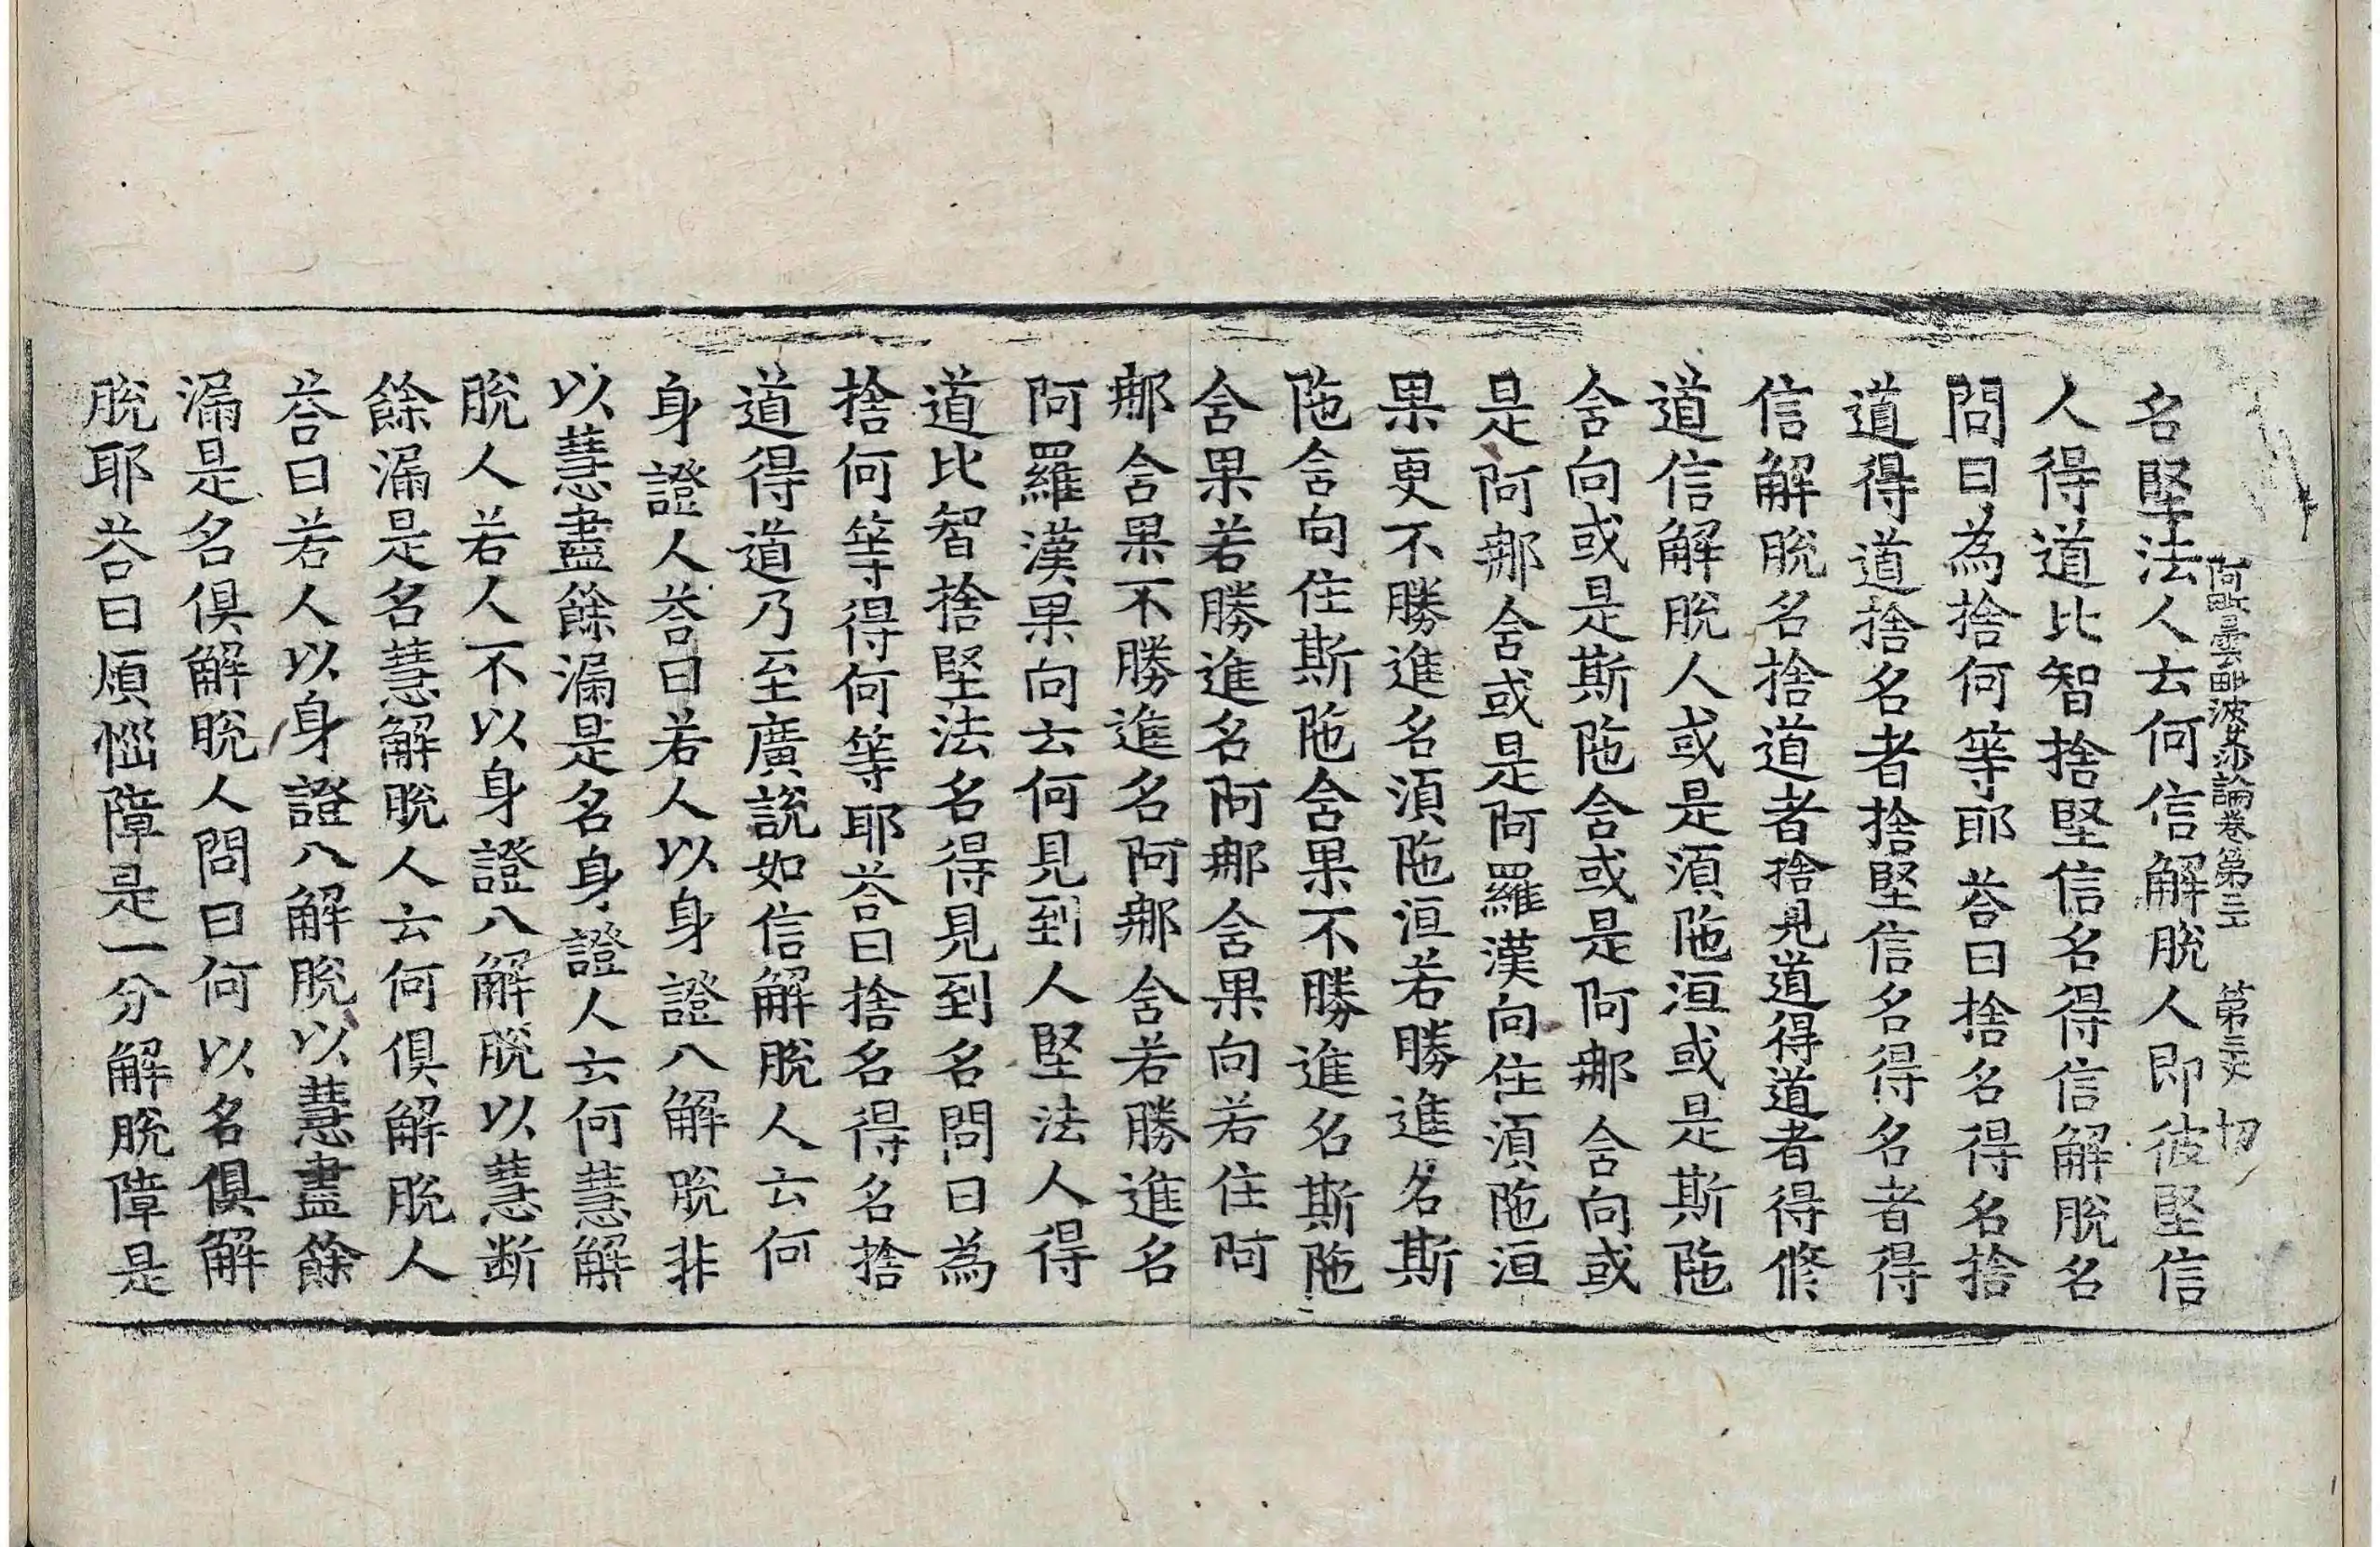 阿毗曇毗婆沙論卷第三 第三丈 切
名堅法人云何信解脫人即彼堅信
人得道比智捨堅信名得信解脫名
問曰為捨何等耶荅曰捨名得名捨
道得道捨名者捨堅信名得名者得
信解脫名捨道者捨見道得道者得修
道信解脫人或是須陁洹或是斯陁
含向或是斯陁含或是阿那含向或
是阿那含或是阿羅漢向住須陁洹
果更不勝進名須陁洹若勝進名斯
陁含向住斯陁含果不勝進名斯陁
含果若勝進名阿那含果向若住阿
那含果不勝進名阿那含若勝進名
阿羅漢果向云何見到人堅法人得
道比智捨堅法名得見到名問曰為
捨何等得何等耶荅曰捨名得名捨
道得道乃至廣說如信解脫人云何
身證人荅曰若人以身證八解脫非
以慧盡餘漏是名身證人云何慧解
脫人若人不以身證八解脫以慧断
餘漏是名慧解脫人云何俱解脫人
荅曰若人以身證八解脫以慧盡餘
漏是名俱解脫人問曰何以名俱解
脫耶荅曰煩惱障是一分解脫障是